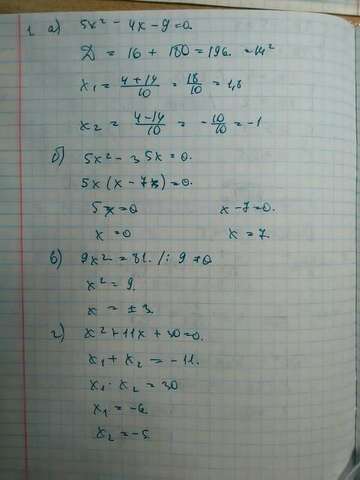 1 а) 5x² - 4x - 9 = 0.
D = 16 + 180 = 196. = 14²
x₁ = (4+14)/10 = 18/10 = 1,8
x₂ = (4-14)/10 = -10/10 = -1
б) 5x² - 35x = 0.
5x(x - 7) = 0.
5x = 0 x - 7 = 0.
x = 0 x = 7.
в) 9x² = 81. /: 9 ≠ 0
x² = 9.
x = ± 3.
г) x² + 11x + 30 = 0.
x₁ + x₂ = -11.
x₁ · x₂ = 30
x₁ = -6
x₂ = -5